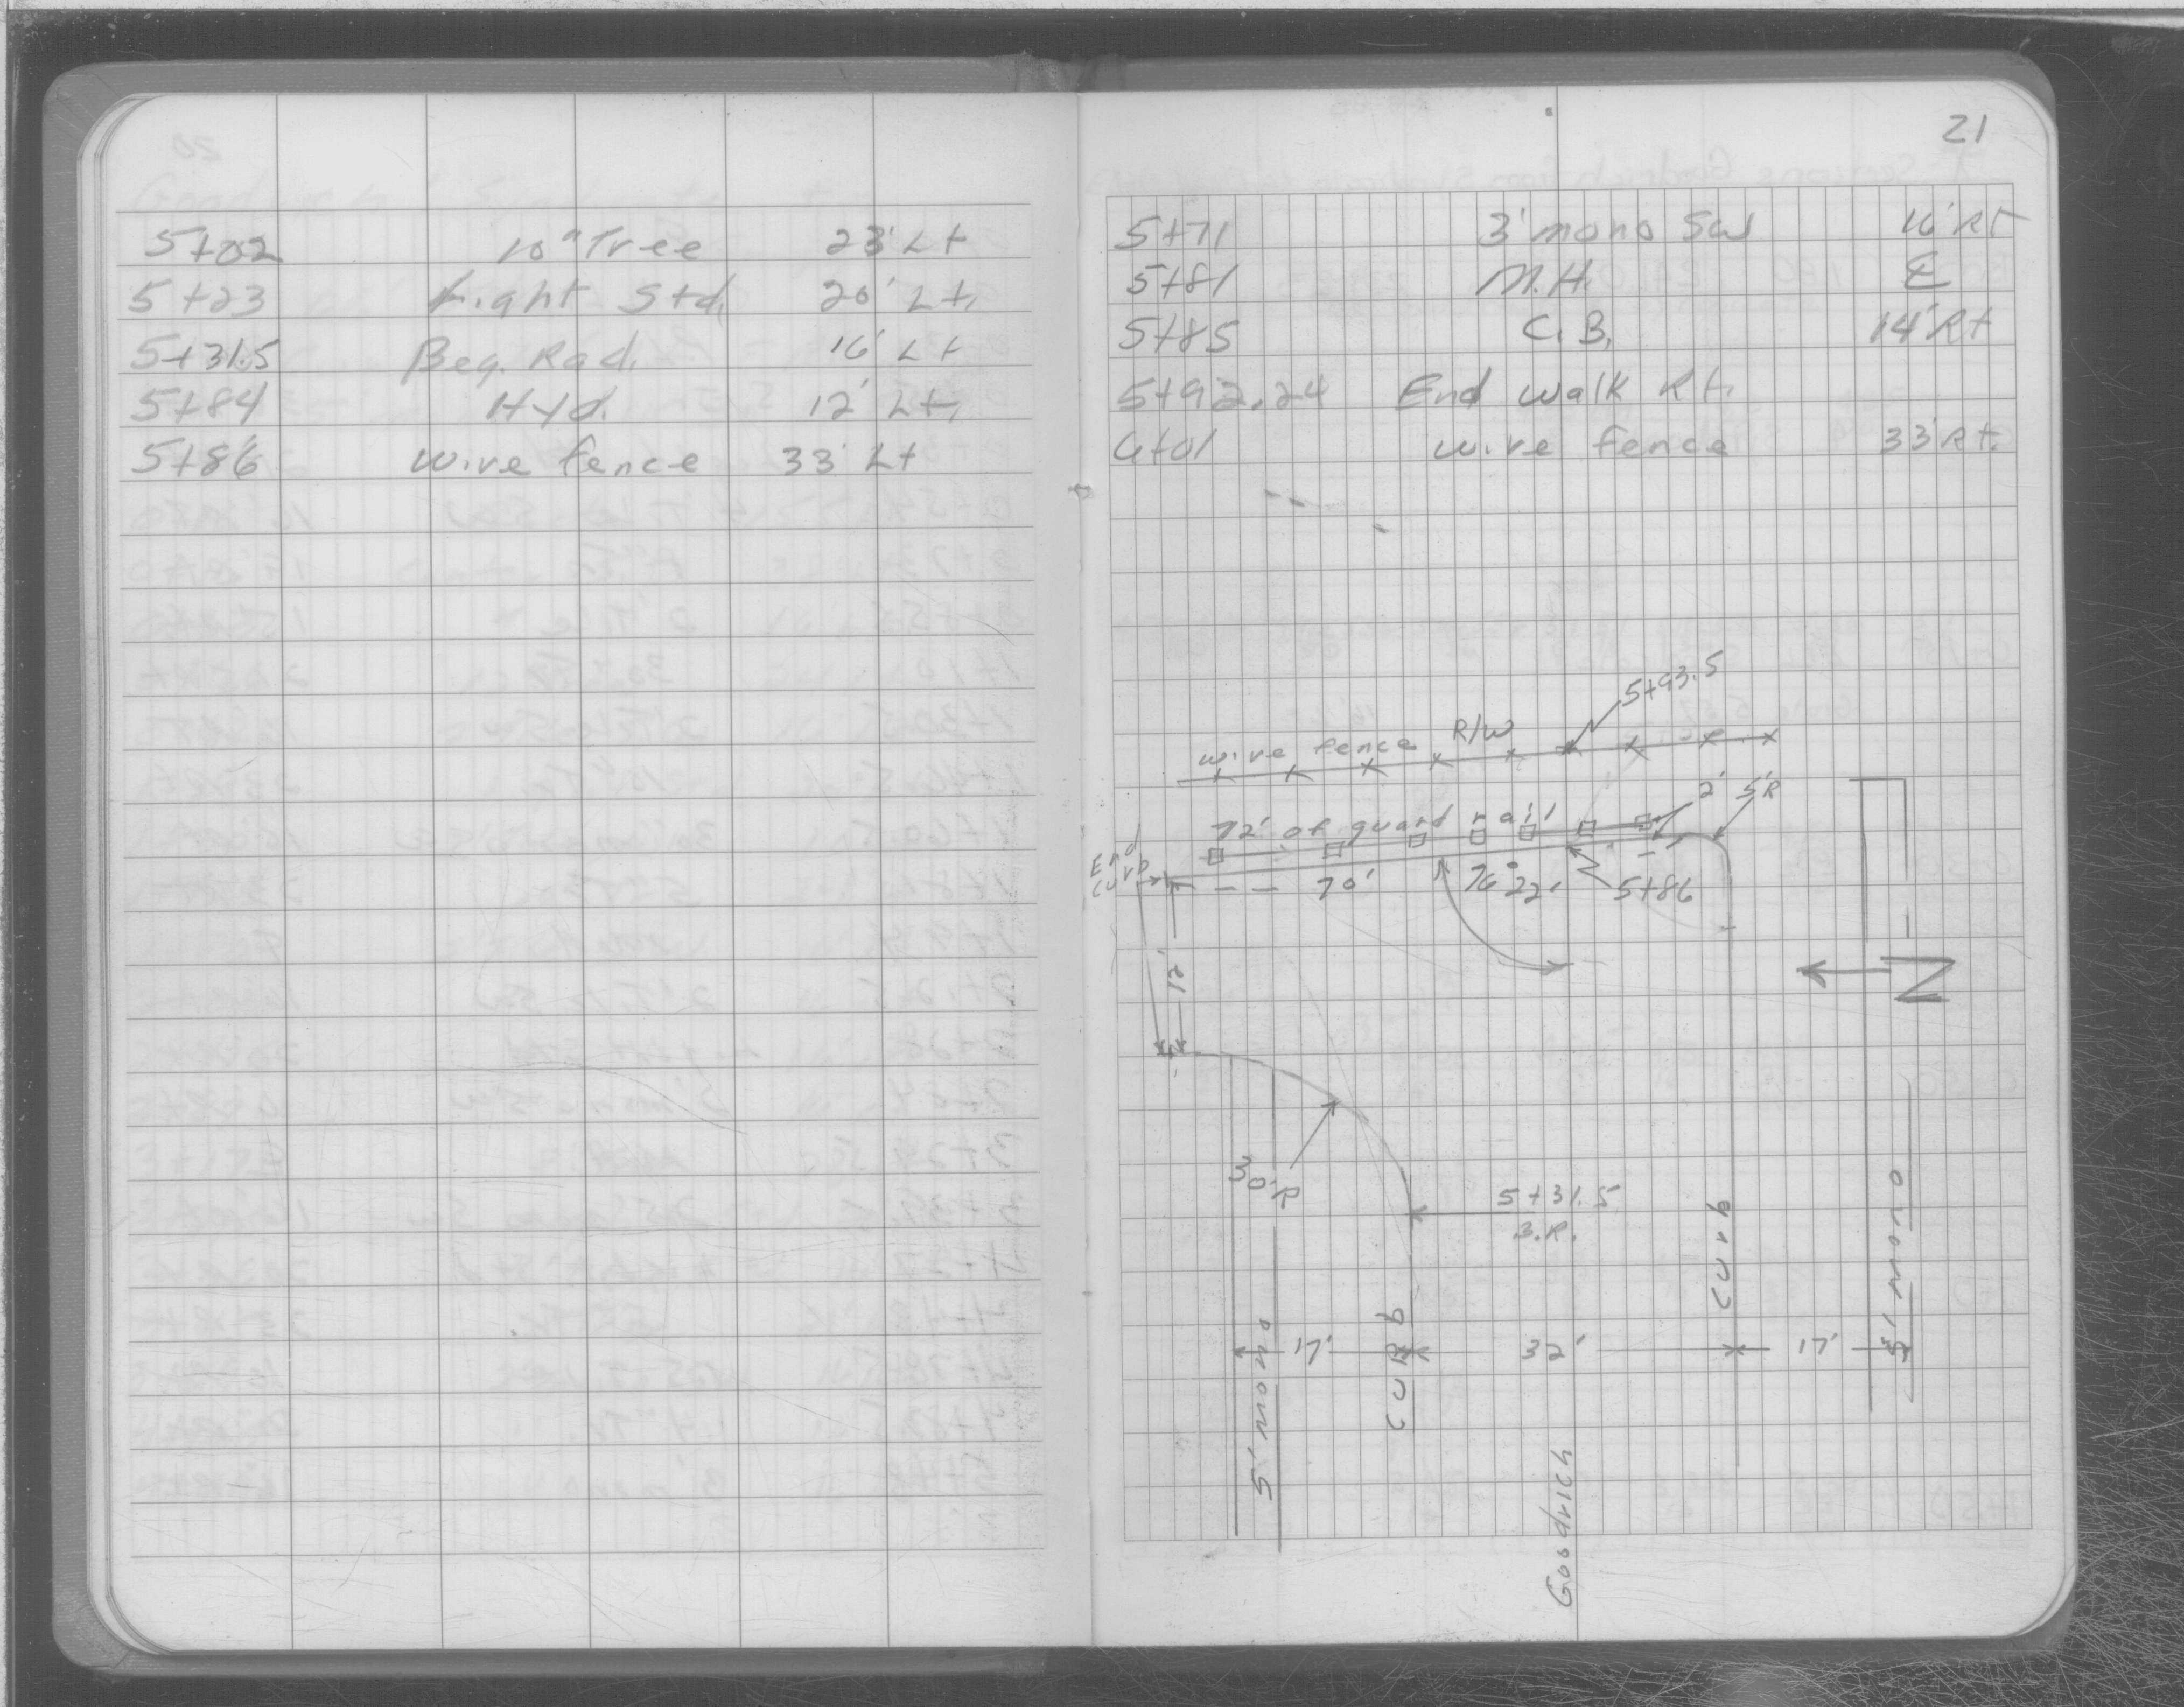 5+02 10" Tree 23' Lt
5+23 Light Std. 20' Lt.
5+31.5 Beg. Rad. 16' Lt
5+84 Hyd. 12' Lt.
5+86 wire fence 33' Lt
21
5+71 3' mono SW 16' Rt
5+81 M.H. ℄
5+85 C.B. 14' Rt
5+92.24 End walk Rt.
6+01 wire fence 33' Rt.
5+93.5
wire fence R/W
2' 5'R
72' of guard rail
End
curb
70' 76°22' 5+86
12'
N
30'R
5+31.5
B.R.
17' 32' 17'
5' mono
curb
Goodrich
curb
5' mono